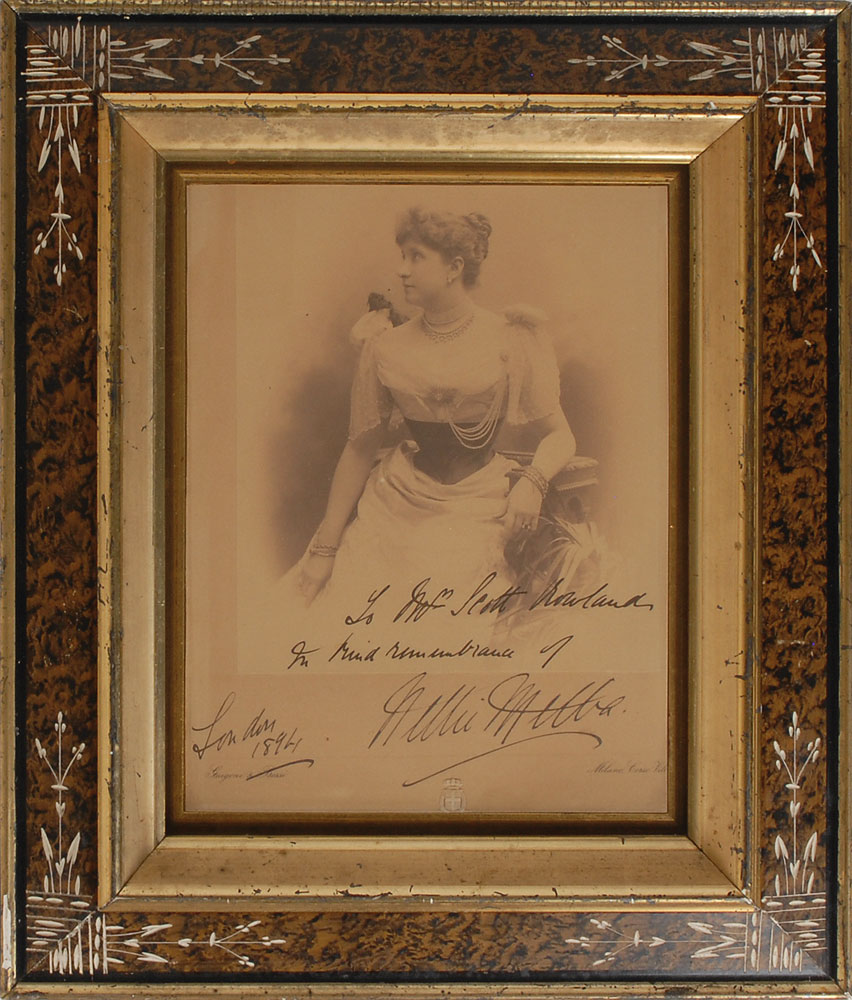 To Mrs Scott Rowland
In kind remembrance of
Nellie Melba.
London
1894.
Milano, Corso